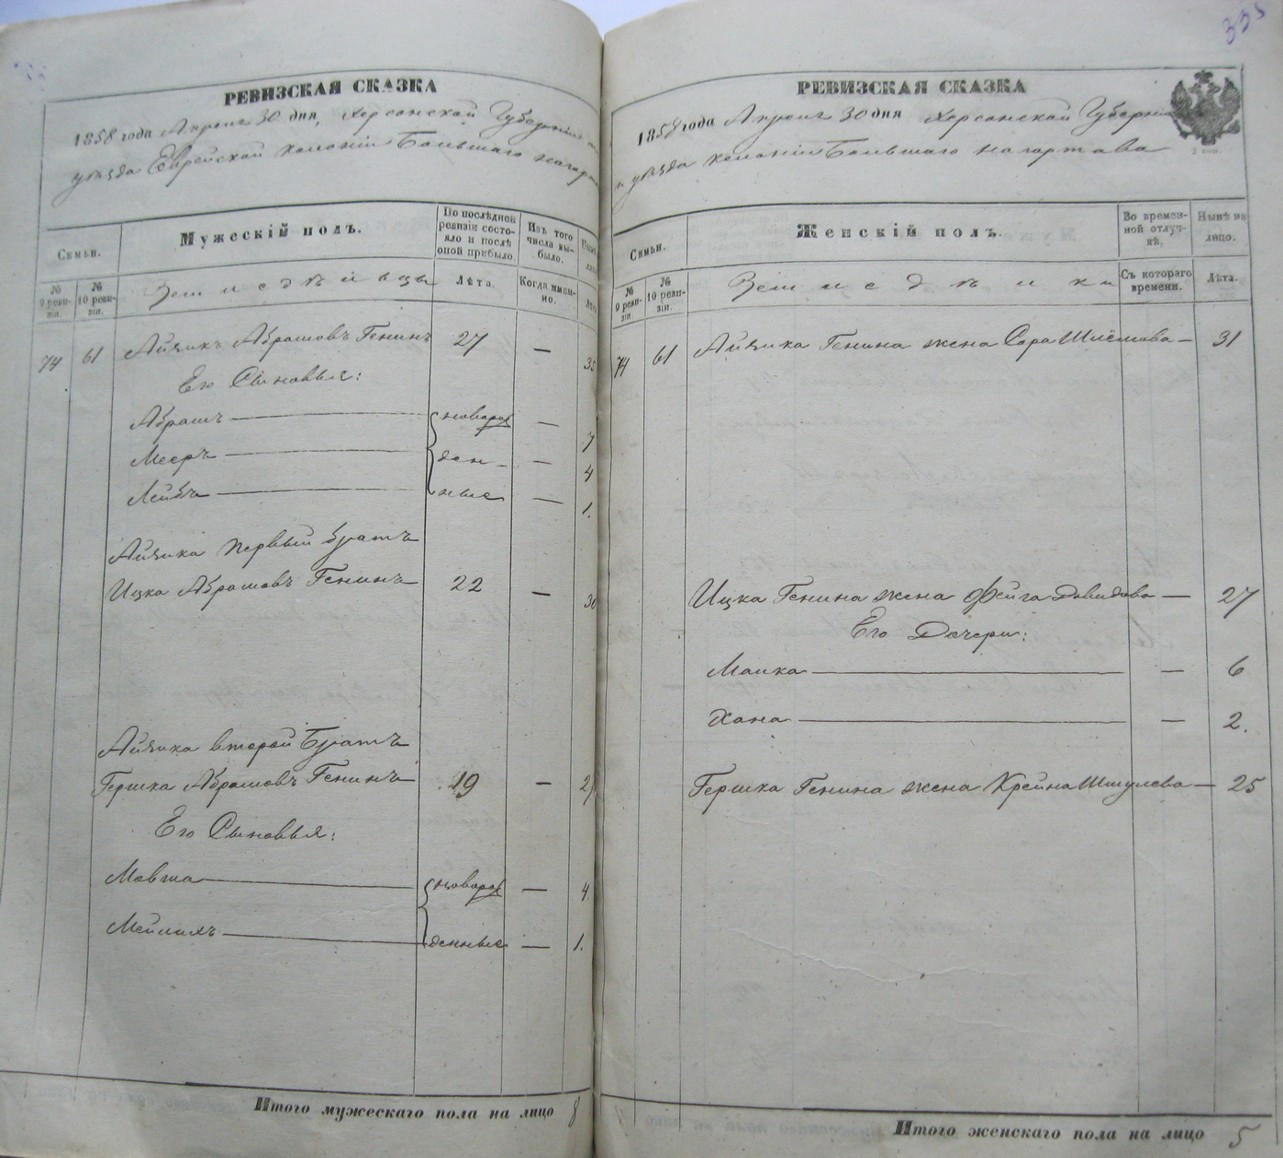 РЕВИЗСКАЯ СКАЗКА
1858 года Апреля 30 дня, Херсонской Губернии
уѣзда Еврейской колоніи Большаго Нагар
Семьи.
Мужескій полъ.
По послѣдней ревизіи состояло и послѣ оной прибыло.
Изъ того числа выбыло.
№ 9 ревизіи.
№ 10 ревизіи.
Земледѣльцы
Лѣта.
Когда именно.
74 61 Айзикъ Абрамовъ Генинъ 27 — 35
Его Сыновья:
Абрамъ — новорож — 7
Мееръ — ден — 4
Лейбъ — ные — 1.
Айзика первый братъ
Ицка Абрамовъ Генинъ 22 — 30
Айзика второй Братъ
Гершка Абрамовъ Генинъ 19 —
Его Сыновья:
Мовша — новорож — 4
Мейлихъ — денные — 1.
Итого мужескаго пола на лицо 8
335
РЕВИЗСКАЯ СКАЗКА
1858 года Апреля 30 дня Херсонской Губерніи
и уѣзда колоніи Большаго Нагартава
Семьи.
Женскій полъ.
Во временной отлучкѣ.
Нынѣ на лицо.
№ 9 ревизіи.
№ 10 ревизіи.
Земледѣлки
Съ котораго времени.
Лѣта.
74 61 Айзика Генина жена Сора Шлёмова — 31
Ицка Генина жена Фейга Давидова — 27
Его Дочери:
Малка — — 6
Хана — — 2.
Гершка Генина жена Крейна Шмулева — 25
Итого женскаго пола на лицо 5